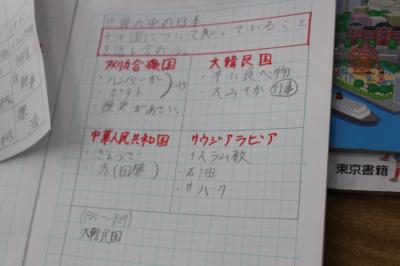 世界の中の日本
十ヶ国について知っていること
を話し合おう。
アメリカ合衆国
・ハンバーガー
・ポテト
・歴史があさい。
大韓民国
・辛い食べ物
・大みそか 行事
中華人民共和国
・ぎょうざ
・赤(国旗)
サウジアラビア
・イスラム教
・石油
・サバク
大韓民国
東京書籍